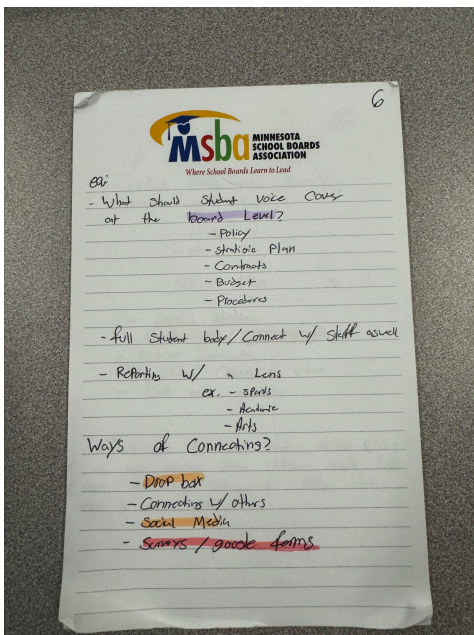 6
msba MINNESOTA
SCHOOL BOARDS
ASSOCIATION
Where School Boards Learn to Lead
- What should Student Voice Cover
at the board Level?
- Policy
- Strategic Plan
- Contracts
- Budget
- Procedures
- full Student body / Connect w/ Staff aswell
- Reporting w/ a Lens
ex. - sports
- Academic
- Arts
Ways of Connecting?
- Drop box
- Connecting w/ others
- Social Media
- Surveys / google forms